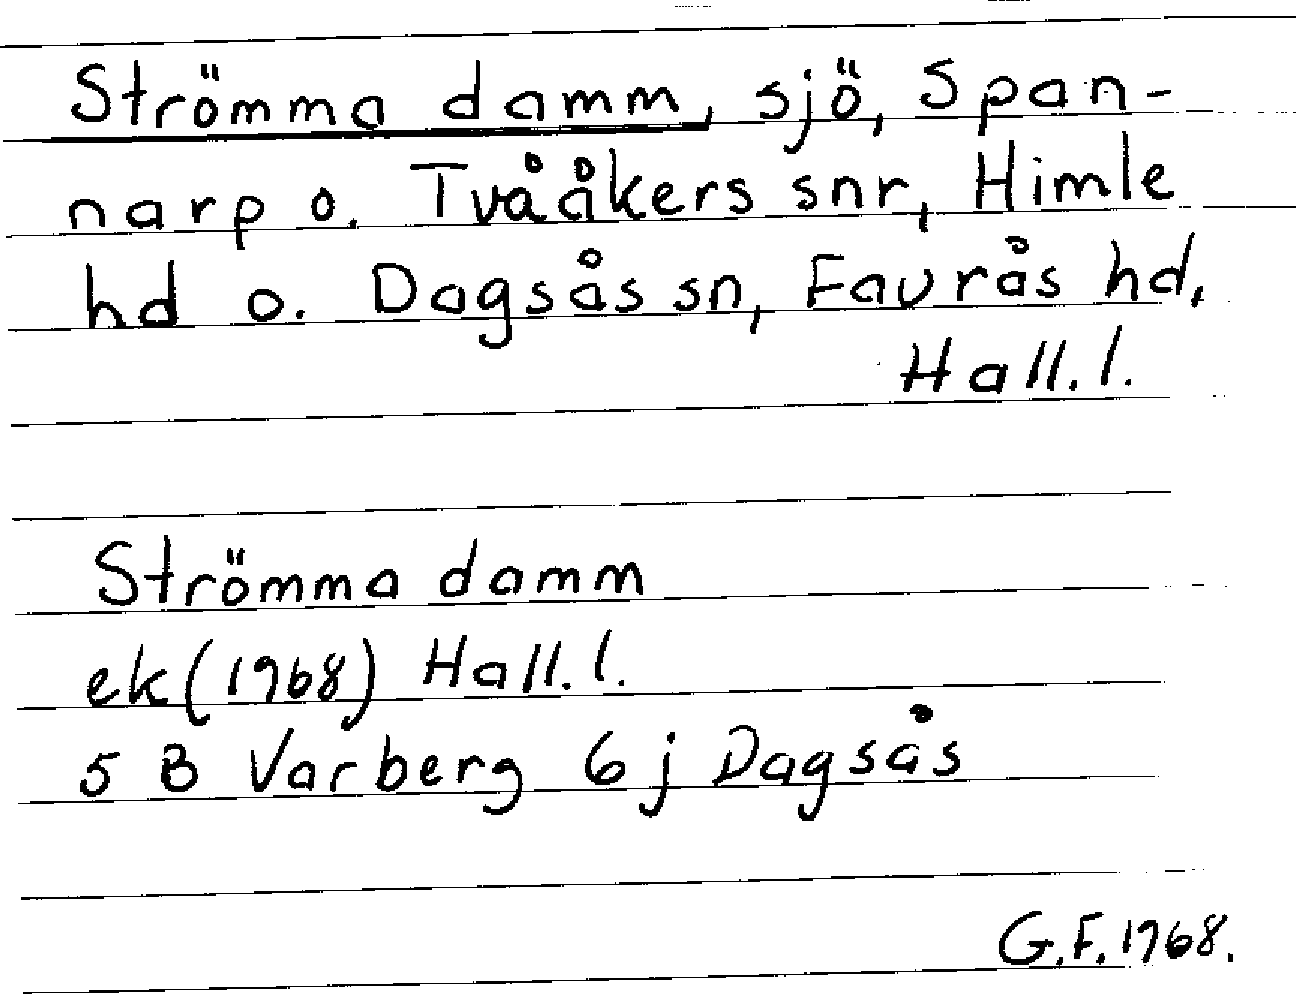 Strömma damm, sjö, Span-
narp o. Tvååkers snr, Himle
hd o. Dagsås sn, Faurås hd,
Hall. l.
Strömma damm
ek (1968) Hall. l.
5 B Varberg 6 j Dagsås
G.F. 1968.